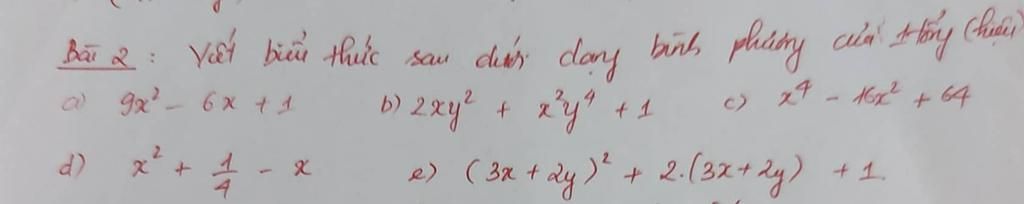 Bài 2 : Viết biểu thức sau dưới dạng bình phương của 1 tổng (hiệu)
a) 9x² - 6x + 1 b) 2xy² + x²y⁴ + 1 c) x⁴ - 16x² + 64
d) x² + 1/4 - x e) (3x + 2y)² + 2.(3x + 2y) + 1.